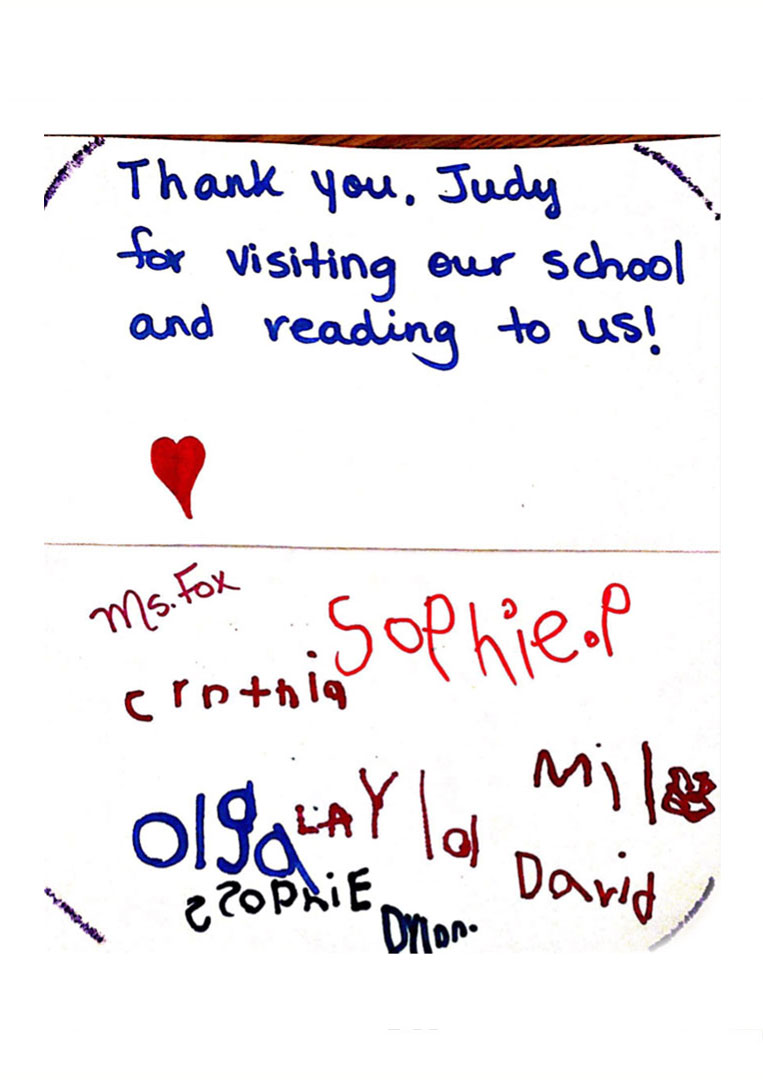 Thank you, Judy
for visiting our school
and reading to us!
Ms. Fox
Sophie.P
crnthia
Mil
olga
LAYla
David
SSOPhiE
Dylan.